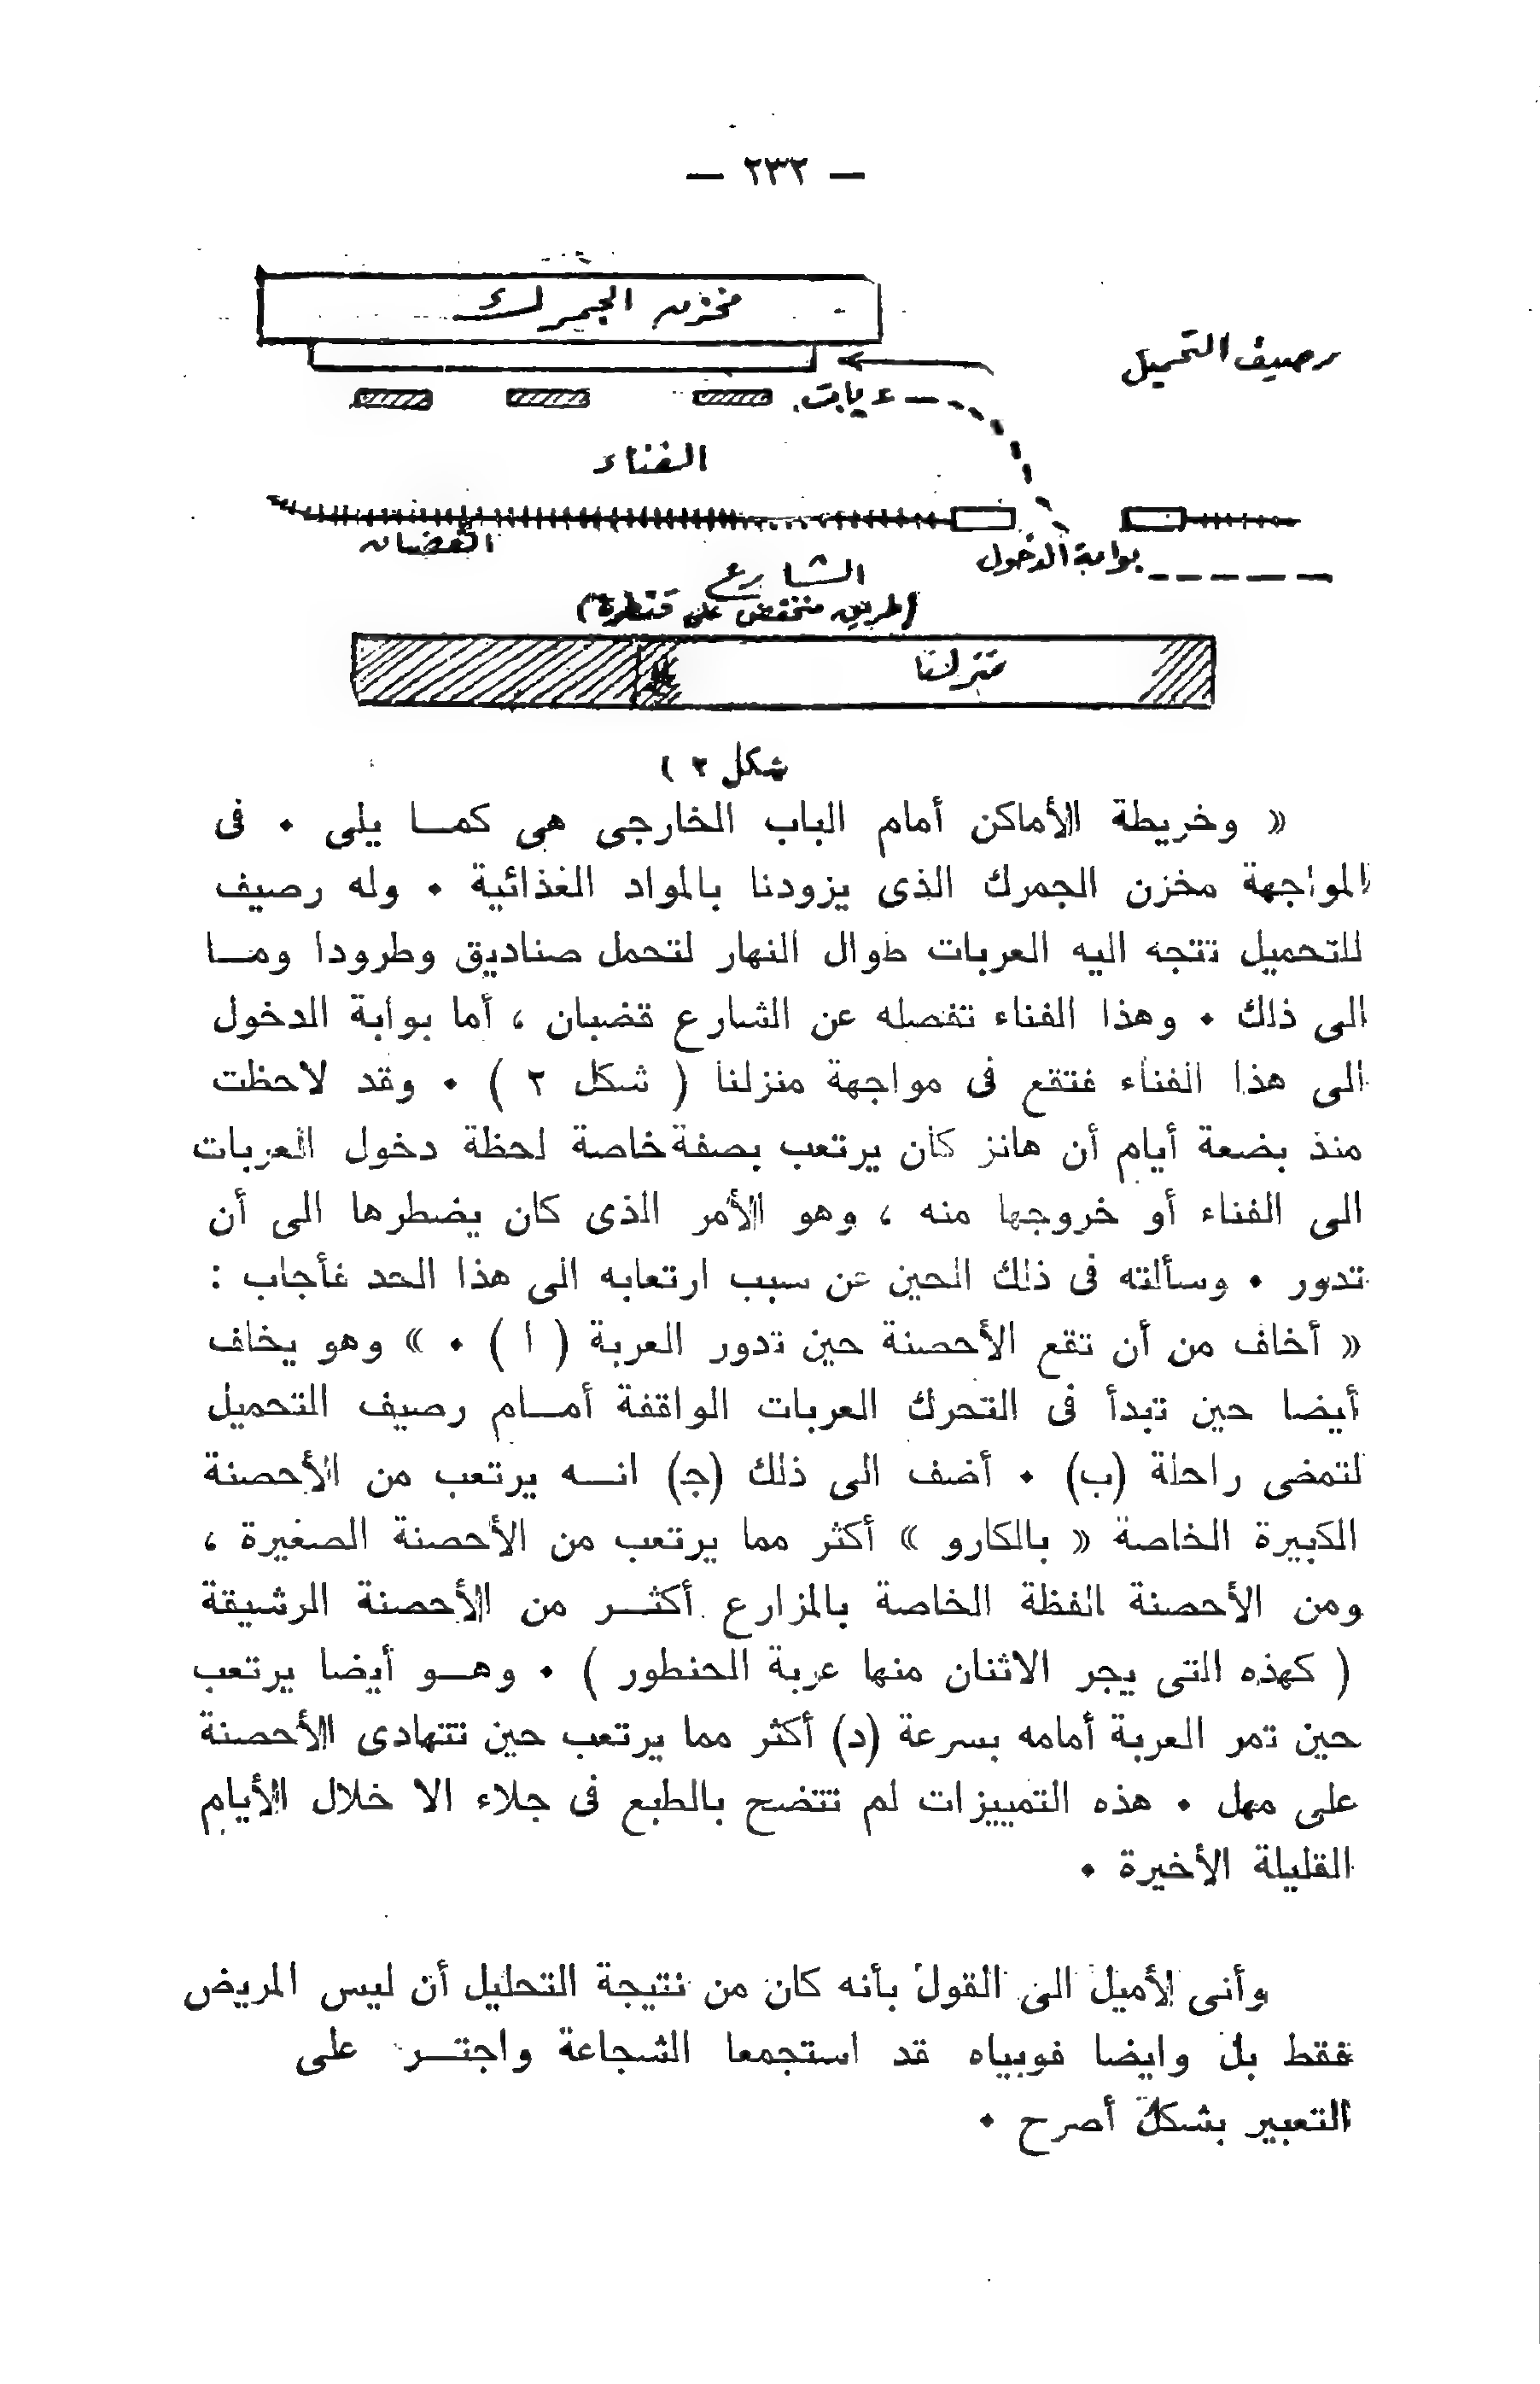 — ٢٣٢ —
مخزن الجمرك
رصيف التحميل
عربات
الفناء
القضبان
بوابة الدخول
الشارع
(طريق منخفض على قنطرة)
منزلنا
شكل ٢ )
« وخريطة الأماكن أمام الباب الخارجى هى كمــا يلى ٠ فى
المواجهة مخزن الجمرك الذى يزودنا بالمواد الغذائية ٠ وله رصيف
للتحميل تتجه اليه العربات طوال النهار لتحمل صناديق وطرودا ومــا
الى ذلك ٠ وهذا الفناء تفصله عن الشارع قضبان ، أما بوابة الدخول
الى هذا الفناء فتقع فى مواجهة منزلنا ( شكل ٢ ) ٠ وقد لاحظت
منذ بضعة أيام أن هانز كان يرتعب بصفة خاصة لحظة دخول العربات
الى الفناء أو خروجها منه ، وهو الأمر الذى كان يضطرها الى أن
تدور ٠ وسألته فى ذلك الحين عن سبب ارتعابه الى هذا الحد فأجاب :
« أخاف من أن تقع الأحصنة حين تدور العربة ( ا ) ٠ » وهو يخاف
أيضا حين تبدأ فى التحرك العربات الواقفة أمــام رصيف التحميل
لتمضى راحلة (ب) ٠ أضف الى ذلك (جـ) انــه يرتعب من الأحصنة
الكبيرة الخاصة « بالكارو » أكثر مما يرتعب من الأحصنة الصغيرة ،
ومن الأحصنة الفظة الخاصة بالمزارع أكثــر من الأحصنة الرشيقة
( كهذه التى يجر الاثنان منها عربة الحنطور ) ٠ وهــو أيضا يرتعب
حين تمر العربة أمامه بسرعة (د) أكثر مما يرتعب حين تتهادى الأحصنة
على مهل ٠ هذه التمييزات لم تتضح بالطبع فى جلاء الا خلال الأيام
القليلة الأخيرة ٠
وأنى لأميل الى القول بأنه كان من نتيجة التحليل أن ليس المريض
فقط بل وايضا فوبياه قد استجمعا الشجاعة واجتــر على
التعبير بشكل أصرح ٠